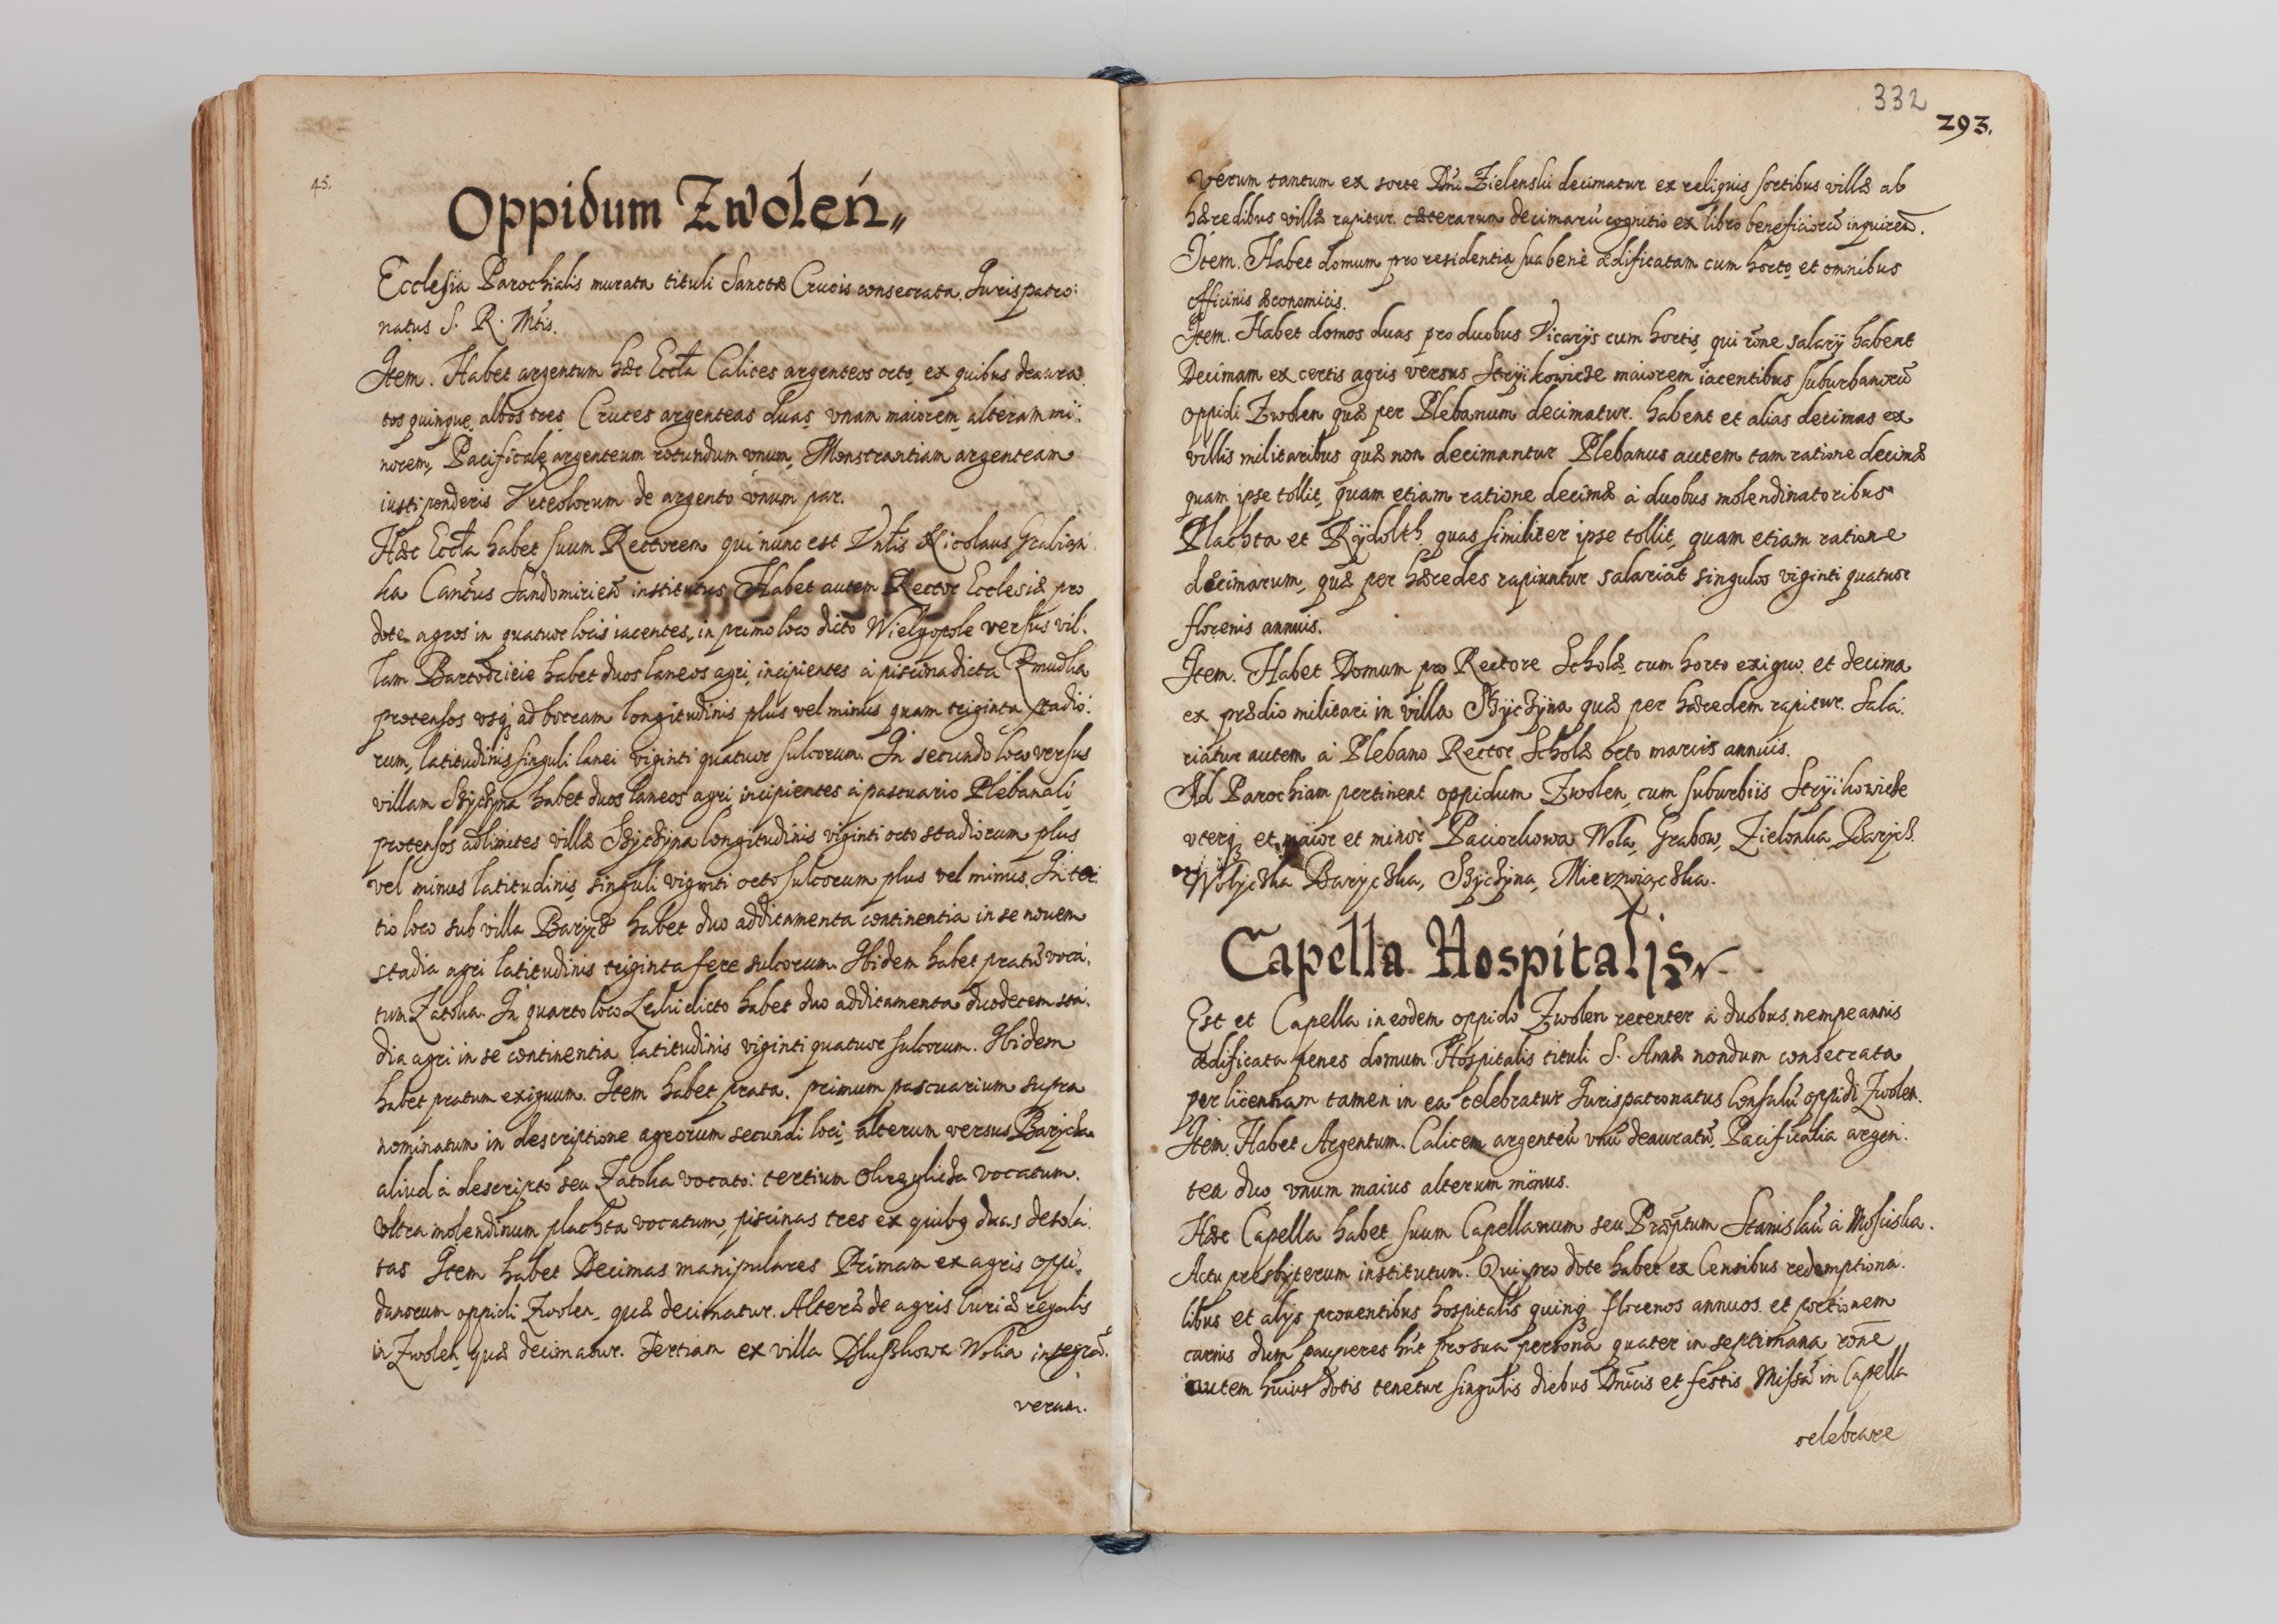 45.
Oppidum Zwoleń
Ecclesia Parochialis murata tituli Sanctæ Crucis consecrata. Jurispatro:
natus S. R. Mtis.
Item. Habet argentum hæc Eccła Calices argenteos octo, ex quibus deaura:
tos quinque, albos tres, Cruces argenteas duas, vnam maiorem, alteram mi:
norem, Pacificale argenteum rotundum vnum, Monstrantiam argenteam
iusti ponderis Vrceolorum de argento vnum par.
Hæc Eccła habet suum Rectorem qui nunc est Vnłis Nicolaus
Cantus Sandomirien̄ institutus Habet autem Rector Ecclesiæ pro
dote agros in quatuor locis iacentes, in primo loco dicto Wielgopole versus vil:
lam Bartodzieie habet duos laneos agri, incipientes à piscina dicta
protensos vsq3 ad boream longitudinis plus vel minus quam triginta stadio:
rum, latitudinis singuli lanei viginti quatuor sulcorum. In secundo loco versus
villam Szyczyna habet duos laneos agri incipientes à pascuario Plebanali
protensos ad limites villæ Szyczyna longitudinis viginti octo stadiorum plus
vel minus latitudinis, singuli viginti octo sulcorum plus vel minus. In ter:
tio loco sub villa Barycz habet duo additamenta continentia in se nouem
stadia agri latitudinis triginta fere sulcorum. Ibidem habet pratū voca:
tum Zatoka. In quarto loco dicto habet duo additamenta duodecem sta:
dia agri in se continentia latitudinis viginti quatuor sulcorum. Ibidem
habet pratum exiguum. Item habet prata. primum pascuarium supra
nominatum in descriptione agrorum secundi loci, alterum versus Barycz
aliud à descripto seu Zatoka vocato: tertium Okręglicza vocatum.
Vltra molendinum plachta vocatum, piscinas tres ex quibg duas desola:
tas Item habet Decimas manipulares Primam ex agris oppi:
danorum oppidi Zwolen, quæ decimatur. Alterā de agris Curiæ regalis
in Zwolen, quæ decimatur. Tertiam ex villa Dłuszkowa Wolia integrā.
verum.
332
293.
Verum tantum ex sorte Dn̄i Zielenskij decimatur ex reliquis sortibus villæ ab
hæredibus villæ rapitur. cæterarum decimarū cognitio ex libro beneficiorū inquiren̄.
Item. Habet domum pro residentia sua bene ædificatam cum horto, et omnibus
officinis œconomicis.
Item. Habet domos duas pro duobus Vicarijs cum hortis, qui rōne salarij habent
Decimam ex certis agris versus Stryikowicze maiorem iacentibus suburbanorū
oppidi Zwolen quæ per Plebanum decimatur. habent et alias decimas ex
villis militaribus quæ non decimantur Plebanus autem tam ratione decimæ
quam ipse tollit, quam etiam ratione decimæ à duobus molendinatoribus
Plachta et Rydolth quas similiter ipse tollit, quam etiam ratione
decimarum, quæ per hæredes rapiuntur salariat singulos viginti quatuor
florenis annuis.
Item. Habet Domum pro Rectore Scholæ cum horto exiguo et decima
ex prædio militari in villa Szyczyna quæ per hæredem rapitur. Sala:
riatur autem à Plebano Rector Scholæ octo marcis annuis.
Ad Parochiam pertinent oppidum Zwolen, cum suburbiis Stryikowicze
vterq3 et maior et minor Paciorkowa Wola, Grabow, Zielonka, Barycz.
Wolyczka Baryczka, Szyczyna, Mierzwiączka.
Capella Hospitalis
Est et Capella in eodem oppido Zwolen recenter à duobus nempe annis
ædificata penes domum Hospitalis tituli S. Annæ nondum consecrata
per licentiam tamen in ea celebratur Jurispatronatus Consulū oppidi Zwolen.
Item. Habet Argentum. Calicem argenteū vnū deauratū, Pacificalia argen:
tea duo, vnum maius alterum minus.
Hæc Capella habet suum Capellanum seu Præptum Stanislaū à Mosciska.
Actu presbyterum institutum. Qui pro dote habet ex Censibus redemptiona:
libus et alijs prouentibus hospitalis quinq3 florenos annuos, et portionem
carnis dum pauperes hn̄t pro sua persona quater in septimana rōne
autem huius dotis tenetur singulis diebus Dnīcis et festis Missā in Capella
celebrare